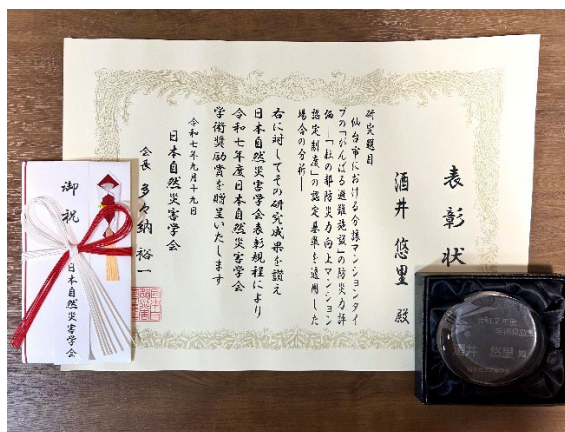 表彰状
酒井 悠里 殿
研究題目
仙台市における分譲マンションタイ
プの「がんばる避難施設」の防災力評
価―「杜の都防災力向上マンション
認定制度」の認定基準を適用した
場合の分析―
右に対してその研究成果を讃え
日本自然災害学会表彰規程により
令和七年度日本自然災害学会
学術奨励賞を贈呈いたします
令和七年九月十九日
日本自然災害学会
会長 多々納 裕一
御祝
日本自然災害学会
令和7年度
酒井 悠里 殿